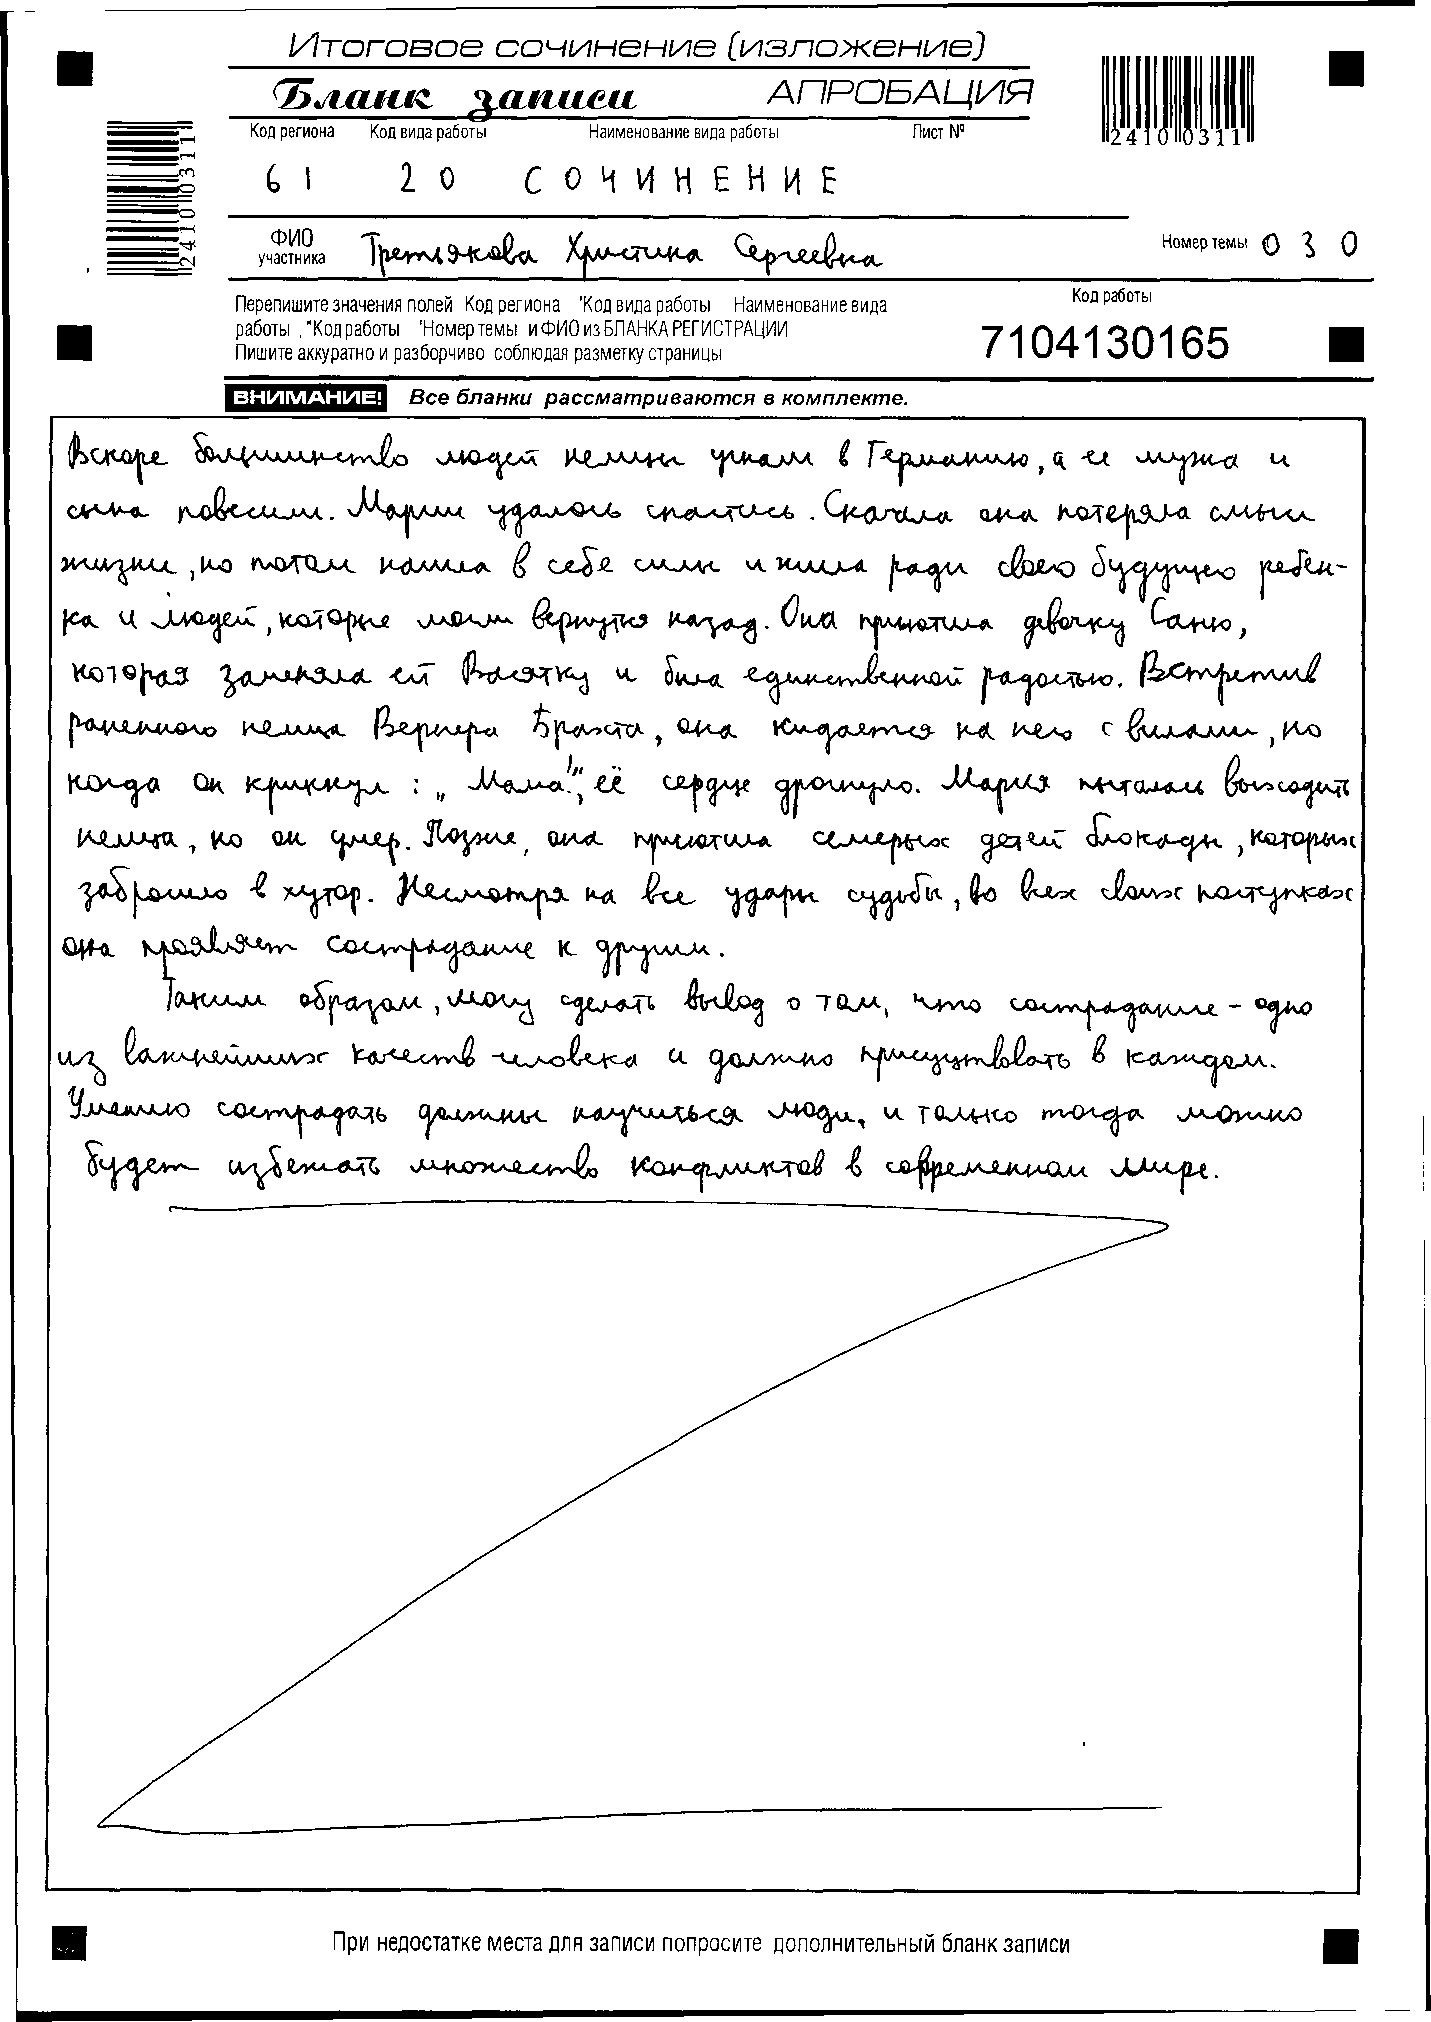 Итоговое сочинение (изложение)
Бланк записи АПРОБАЦИЯ
Код региона Код вида работы Наименование вида работы Лист №
24100311
24100311
61 20 СОЧИНЕНИЕ
ФИО участника Третьякова Христина Сергеевна Номер темы 030
Перепишите значения полей Код региона "Код вида работы Наименование вида
работы , "Код работы "Номер темы и ФИО из БЛАНКА РЕГИСТРАЦИИ
Пишите аккуратно и разборчиво соблюдая разметку страницы
Код работы
7104130165
ВНИМАНИЕ! Все бланки рассматриваются в комплекте.
Вскоре большинство людей немцы угнали в Германию, а ее мужа и
сына повесили. Марии удалось спастись. Сначала она потеряла смысл
жизни, но потом нашла в себе силы и жила ради своего будущего ребен-
ка и людей, которые могли вернуться назад. Она приютила девочку Саню,
которая заменяла ей Васятку и была единственной радостью. Встретив
раненного немца Вернера Брахта, она кидается на него с вилами, но
когда он крикнул: „Мама!", её сердце дрогнуло. Мария пыталась выходить
немца, но он умер. Позже, она приютила семерых детей блокады, которых
забросило в хутор. Несмотря на все удары судьбы, во всех своих поступках
она проявляет сострадание к другим.
Таким образом, могу сделать вывод о том, что сострадание - одно
из важнейших качеств человека и должно присутствовать в каждом.
Умению сострадать должны научиться люди, и только тогда можно
будет избежать множество конфликтов в современном мире.
При недостатке места для записи попросите дополнительный бланк записи